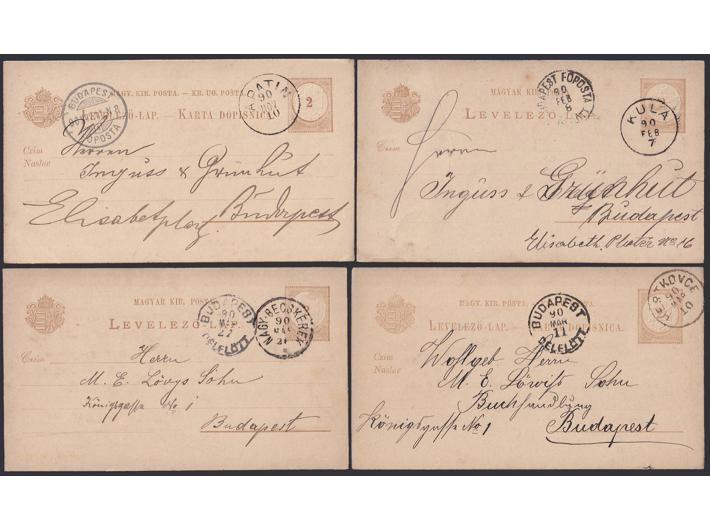 MAGY. KIR. POSTA. — KR. UG. POŠTA.
LEVELEZŐ-LAP. — KARTA DOPISNICA.
2
BUDAPEST
APATIN
90
NOV
10
Czim
Naslov
Herren
Inguss & Grünhut
Elisabetplatz Budapest
MAGYAR KIR. POSTA
LEVELEZŐ-LAP.
BUDAPEST FŐPOSTA
90
FEB
8
KULA
90
FEB
7
Czim
Herrn
Inguss & Grünhut
Budapest
Elisabeth Platz No 16
MAGYAR KIR. POSTA.
LEVELEZŐ-LAP.
BUDAPEST
90
MAR
21
DÉLELŐTT
NAGY-BECSKEREK
90
MAR
21
Czim
Herrn
M. E. Lövys Sohn
Königsgasse No 1
Budapest
MAGY. KIR. POSTA.
LEVELEZŐ-LAP. DOPISNICA.
BUDAPEST
90
MAR
11
DÉLELŐTT
90
MAR
10
Czim
Naslov
Wohlgeb Herrn
M. E. Löwy's Sohn
Buchhandlung
Königsgasse No 1 Budapest